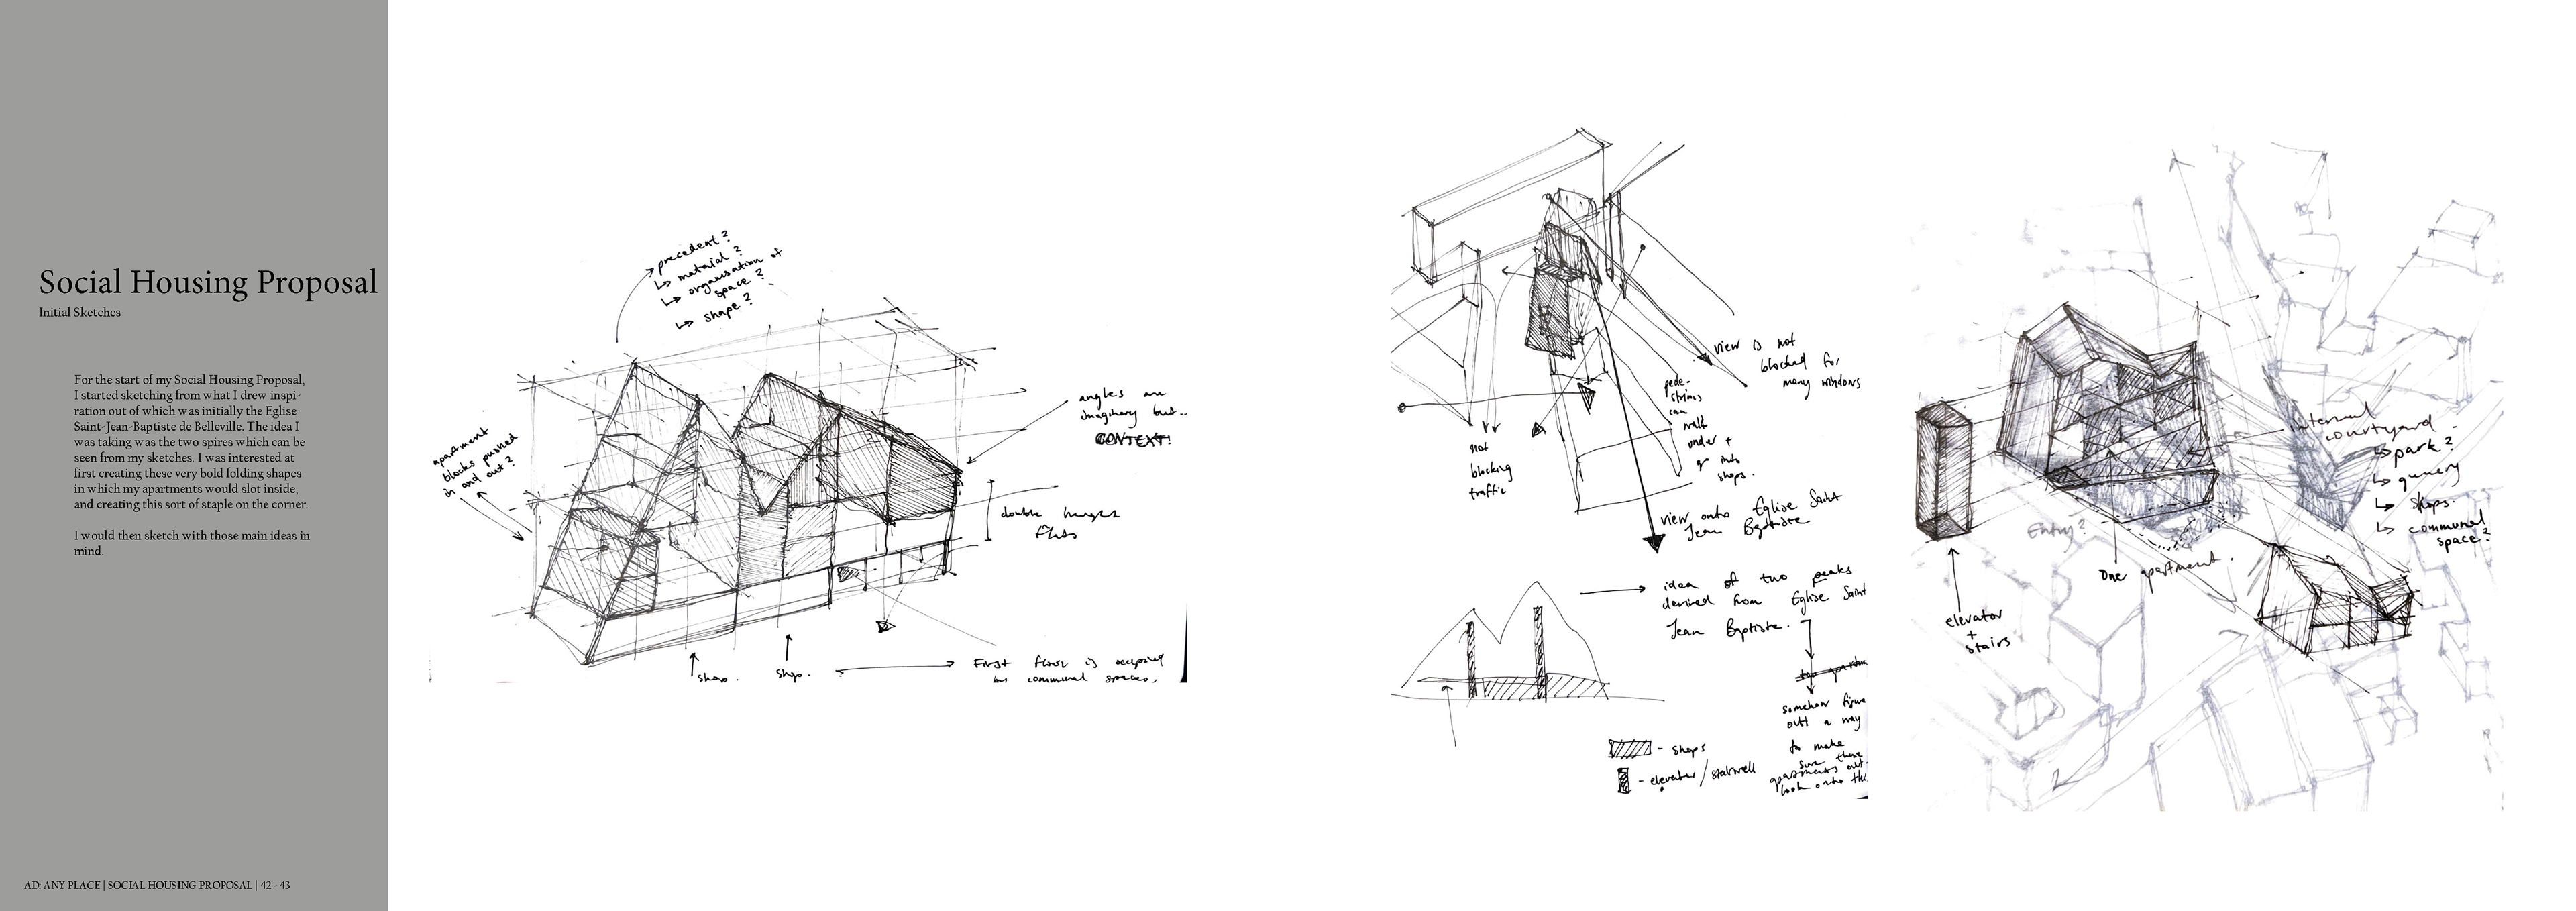 Social Housing Proposal
Initial Sketches
For the start of my Social Housing Proposal,
I started sketching from what I drew inspi-
ration out of which was initially the Eglise
Saint-Jean-Baptiste de Belleville. The idea I
was taking was the two spires which can be
seen from my sketches. I was interested at
first creating these very bold folding shapes
in which my apartments would slot inside,
and creating this sort of staple on the corner.
I would then sketch with those main ideas in
mind.
AD: ANY PLACE | SOCIAL HOUSING PROPOSAL | 42 - 43
precedent?
↳ material?
↳ organisation of
space?
↳ shape?
apartment
blocks pushed
in and out?
angles are
imaginary but..
CONTEXT!
double
flats
shop.
shop.
First floor is occupied
by communal spaces,
view is not
blocked for
many windows
pede-
strians
can
walk
under +
go into
shops.
not
blocking
traffic
view onto Eglise Saint
Jean Baptiste
idea of two peaks
derived from Eglise Saint
Jean Baptiste.
somehow figure
out a way
to make
sure these
apartments out-
look onto this
- shops
- elevator / stairwell
internal
courtyard
↳ park?
↳
↳ shops.
↳ communal
space?
Entry?
One apartment.
elevator
+
stairs